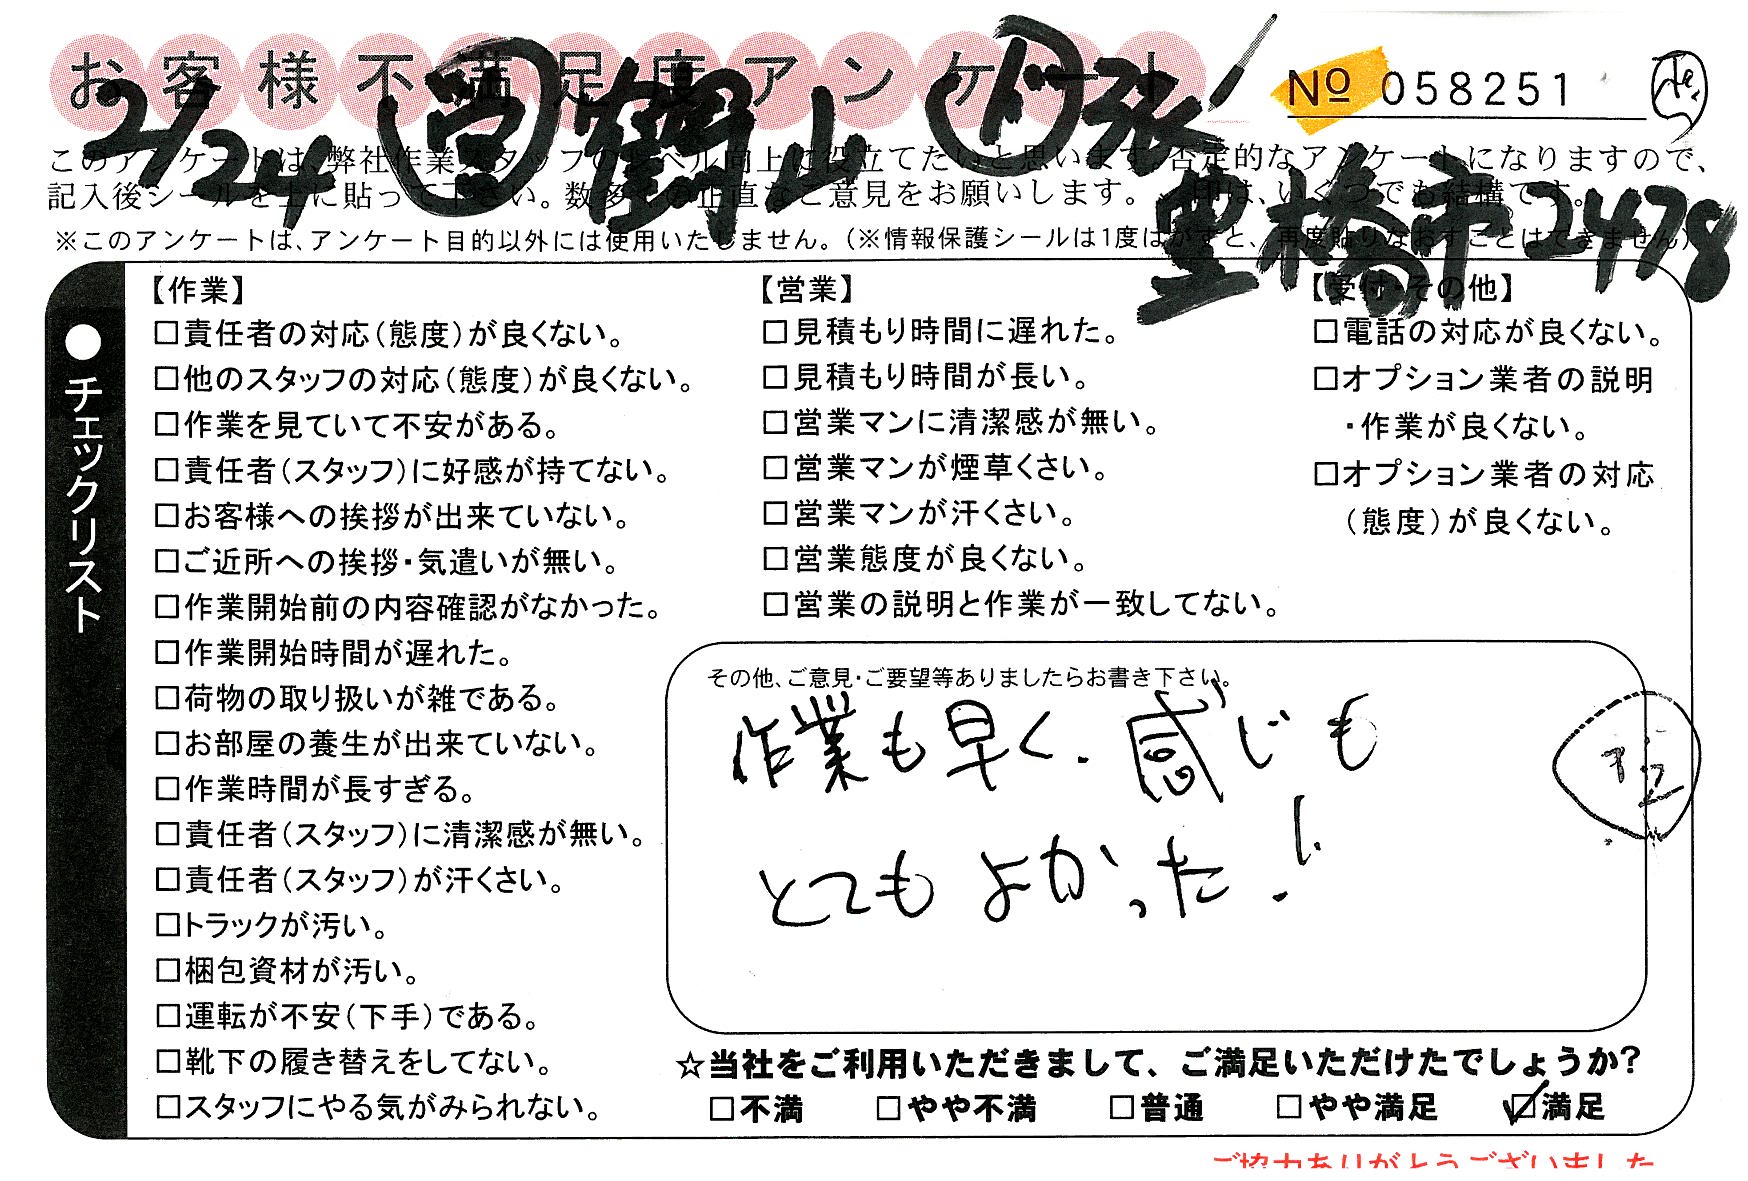 お客様不満足度アンケート
No 058251
2/24 鶴山
豊橋市 2478
このアンケートは、弊社作業スタッフのレベル向上に役立てたいと思います。否定的なアンケートになりますので、
記入後シールを上に貼って下さい。数多くの正直なご意見をお願いします。✓印は、いくつでも結構です。
※このアンケートは、アンケート目的以外には使用いたしません。(※情報保護シールは1度はがすと、再度貼りなおすことはできません)
●チェックリスト
【作業】
□責任者の対応(態度)が良くない。
□他のスタッフの対応(態度)が良くない。
□作業を見ていて不安がある。
□責任者(スタッフ)に好感が持てない。
□お客様への挨拶が出来ていない。
□ご近所への挨拶・気遣いが無い。
□作業開始前の内容確認がなかった。
□作業開始時間が遅れた。
□荷物の取り扱いが雑である。
□お部屋の養生が出来ていない。
□作業時間が長すぎる。
□責任者(スタッフ)に清潔感が無い。
□責任者(スタッフ)が汗くさい。
□トラックが汚い。
□梱包資材が汚い。
□運転が不安(下手)である。
□靴下の履き替えをしてない。
□スタッフにやる気がみられない。
【営業】
□見積もり時間に遅れた。
□見積もり時間が長い。
□営業マンに清潔感が無い。
□営業マンが煙草くさい。
□営業マンが汗くさい。
□営業態度が良くない。
□営業の説明と作業が一致してない。
【受付・その他】
□電話の対応が良くない。
□オプション業者の説明
・作業が良くない。
□オプション業者の対応
(態度)が良くない。
その他、ご意見・ご要望等ありましたらお書き下さい。
作業も早く、感じも
とてもよかった!!
☆当社をご利用いただきまして、ご満足いただけたでしょうか?
□不満 □やや不満 □普通 □やや満足 ☑満足
ご協力ありがとうございました